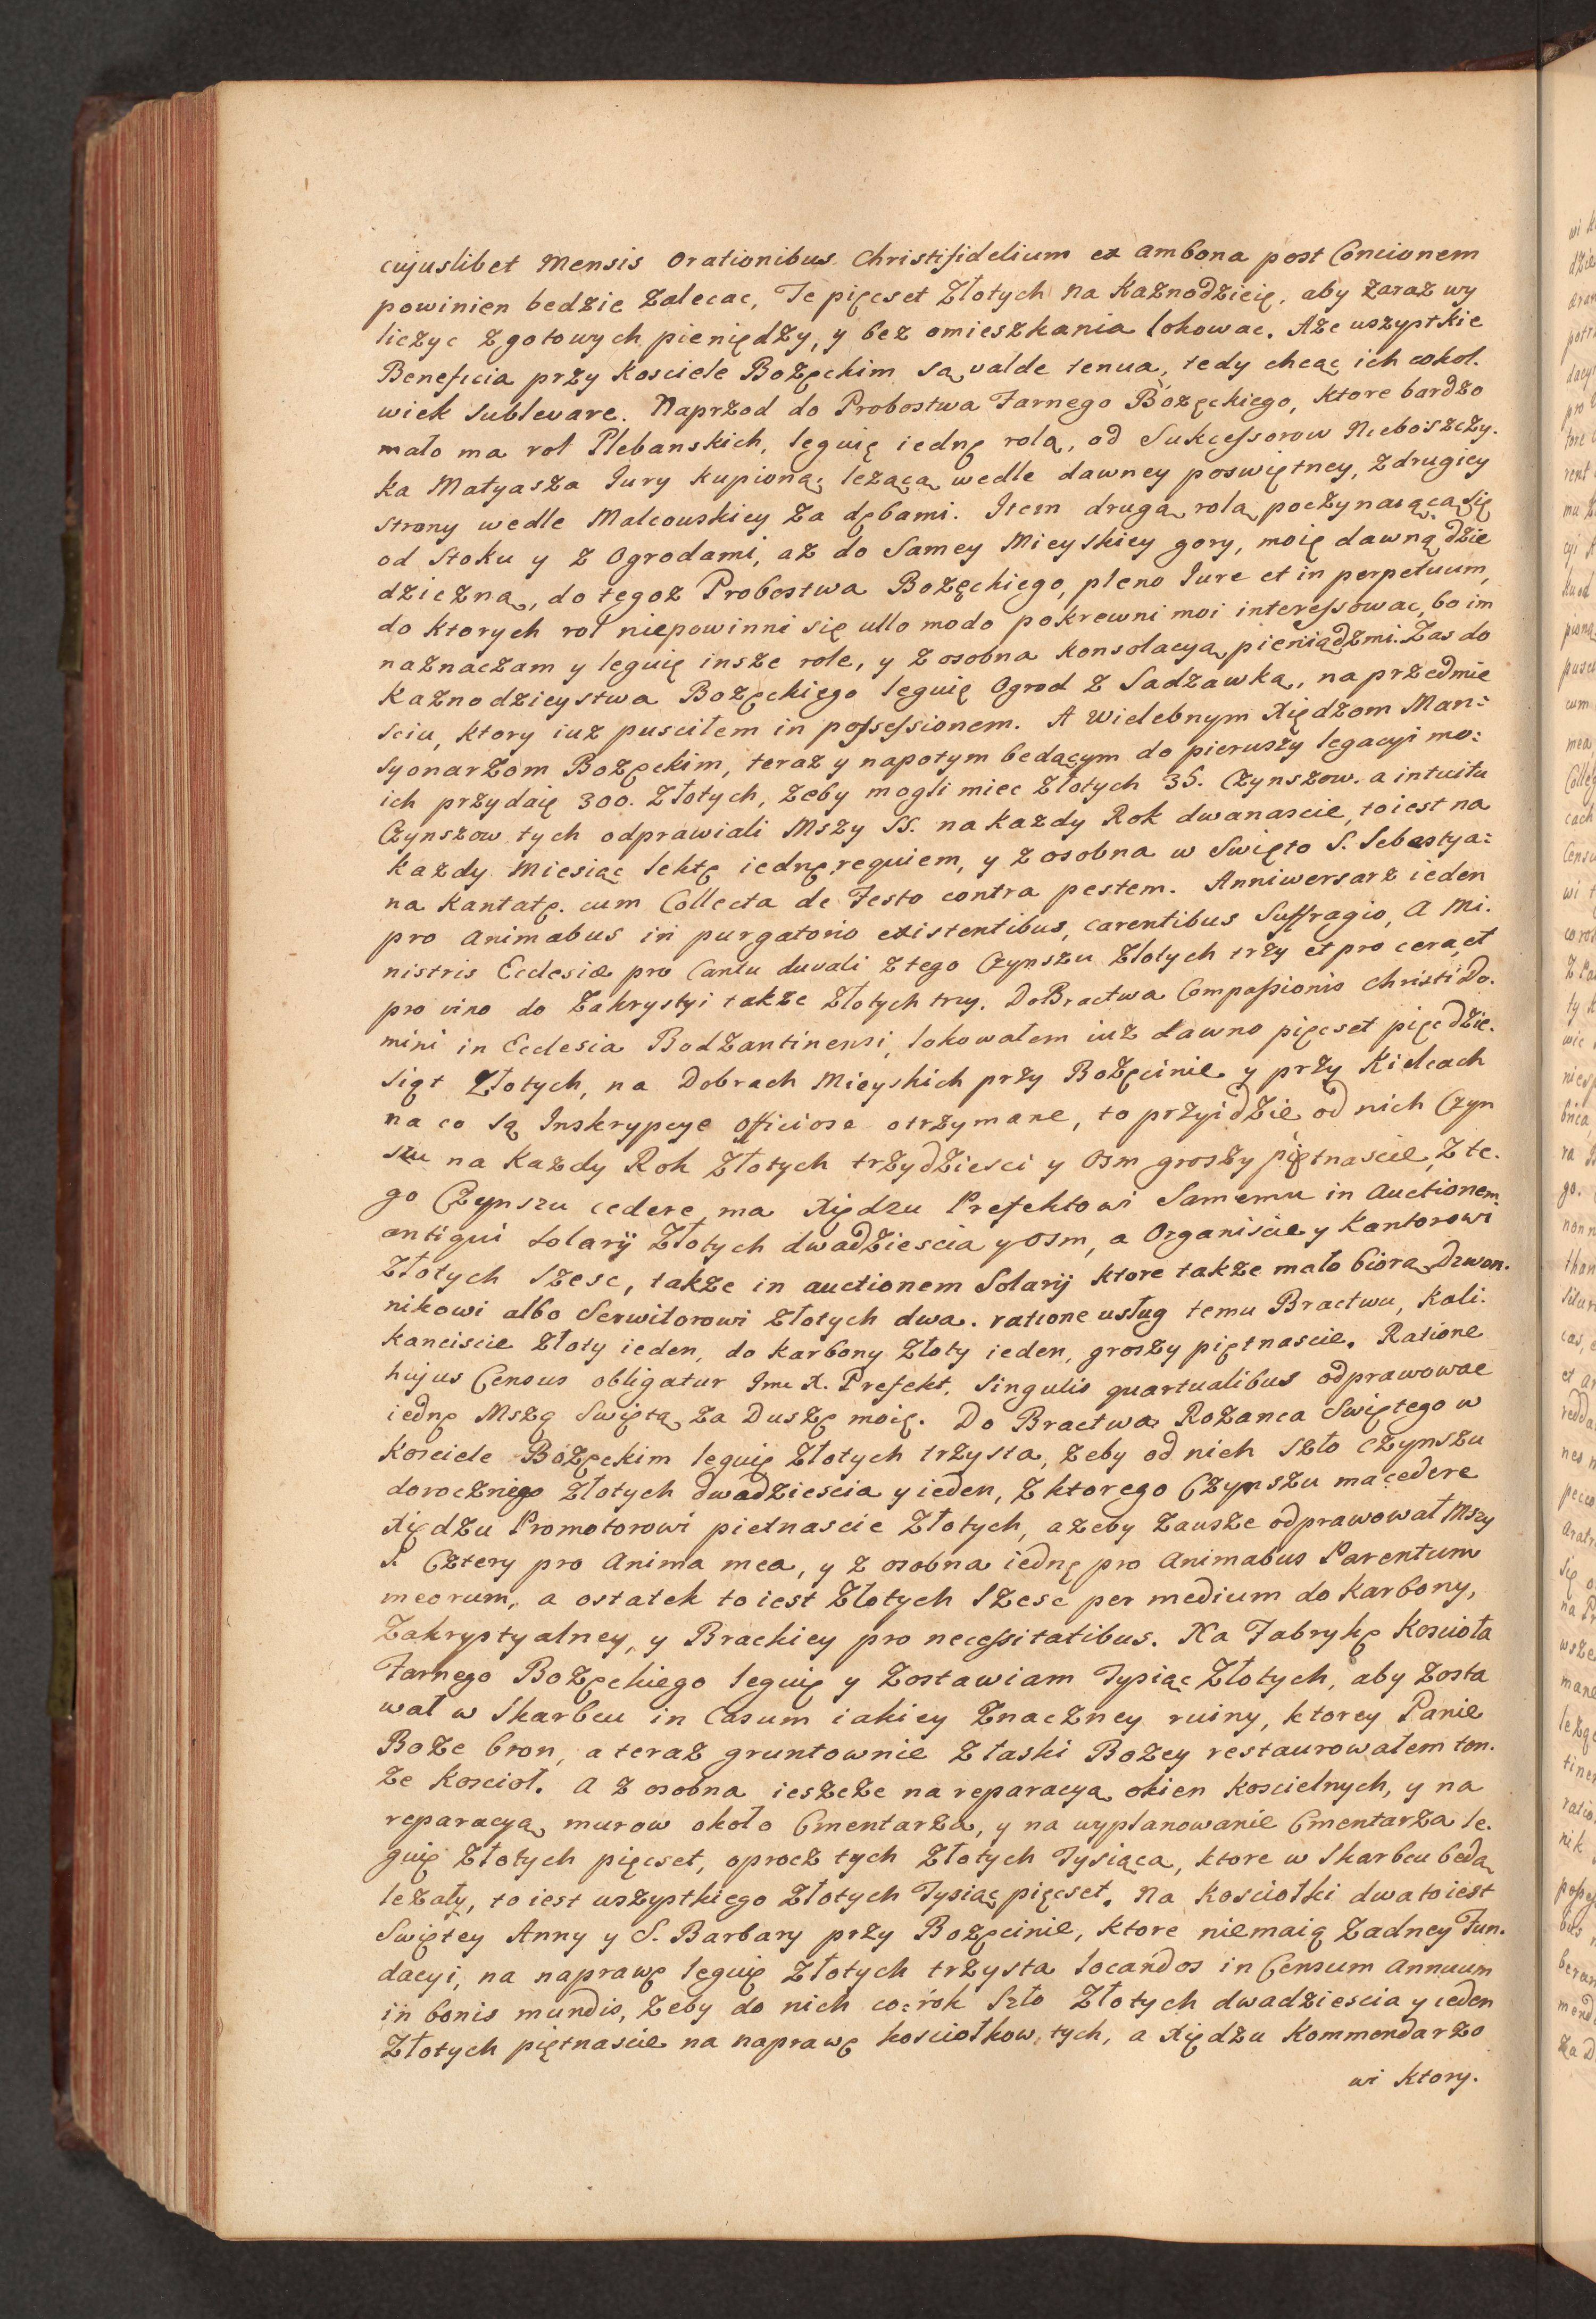 cujuslibet Mensis Orationibus Christifidelium ex ambona post Concionem
powinien bedzie zalecac, Te pięcset Złotych na Kaznodzieię, aby zaraz wy
liczyc z gotowych pieniędzy, y bez omieszkania lokowac. Aże wszystkie
Beneficia przy Kosciele Bożęckim są valde tenua, tedy chcąc ich cokol.
wiek sublevare. Naprzod do Probostwa Farnego Bożęckiego, ktore bardzo
mało ma rol Plebanskich, leguię iednę rolą, od Sukcessorow Nieboszczy.
ka Matyasza Jury kupioną; leżącą wedle dawney poswiętney, z drugiey
strony wedle Malcowskiey za dębami. Item drugą rolą poczynaiącą się
od Stoku y z Ogrodami, aż do Samey Mieyskiey gory, moię dawną dzie
dziczną, do tegoż Probostwa Bożęckiego, pleno Jure et in perpetuum,
do ktorych rol niepowinni się ullo modo pokrewni moi interessowac, bo im
naznaczam y leguię insze role, y z osobna konsolacyą pieniądzmi. Zas do
Kaznodzieystwa Bożęckiego leguię Ogrod z Sadzawką, na przedmie
sciu, ktory iuż pusciłem in possessionem. A Wielebnym Xiędzom Man:
syonarzom Bożęckim, teraz y napotym bedącym do pierwszy legacyi mo:
ich przydaię 300. Złotych, żeby mogli miec Złotych 35. Czynszow. a intuitu
Czynszow tych odprawiali Mszy SS. na każdy Rok dwanascie, to iest na
każdy Miesiąc lektę iednę requiem, y z osobna w Swięto S. Sebastya:
na Kantatę. cum Collecta de Festo contra pestem. Anniwersarz ieden
pro Animabus in purgatorio existentibus, carentibus Suffragio, A Mi.
nistris Ecclesiæ pro Cantu duvali z tego Czynszu Złotych trzy et pro cera, et
pro vino do Zakrystyi także Złotych trzy. Do Bractwa Compassionis Christi Do.
mini in Ecclesia Bodzantinensi, lokowałem iuż dawno pięcset pięcdzie.
siąt Złotych, na Dobrach Mieyskich przy Bożęcinie y przy Kielcach
na co są Inskrypcye Officiose otrzymane, to przyidzie od nich Czyn
szu na Każdy Rok Złotych trzydziesci y Osm groszy piętnascie, z te.
go Czynszu cedere ma Xiędzu Prefektowi Samemu in Auctionem
antiqui Solarij Złotych dwadziescia y Osm, a Organiscie y Kantorowi
Złotych szesc, także in auctionem Solarij ktore także mało biorą, Dzwon.
nikowi albo Serwitorowi Złotych dwa. ratione usług temu Bractwu, Kali.
kanciscie Złoty ieden, do Karbony Złoty ieden, groszy piętnascie. Ratione
hujus Census obligatur Jmc X. Prefekt. singulis quartualibus odprawowac
iednę Mszą Swiętą za Duszę moię. Do Bractwa Rożanca Swiętego w
Kosciele Bożęckim leguię Złotych trzysta, żeby od nich szło czynszu
dorocznego Złotych dwadziescia y ieden, z ktorego Czynszu ma cedere
Xiędzu Promotorowi pietnascie Złotych, a żeby zausze odprawował Mszy
S. Cztery pro Anima mea, y z osobna iednę pro Animabus Parentum
meorum, a ostatek to iest Złotych szesc per medium do karbony,
Zakrystyalney, y Brackiey pro necessitatibus. Na Fabrykę Koscioła
Farnego Bożęckiego leguię y zostawiam Tysiąc Złotych, aby zosta
wał w Skarbcu in Casum iakiey znaczney ruiny, ktorey Panie
Boże bron, a teraz gruntownie z łaski Bożey restaurowałem ten.
że Koscioł. A z osobna ieszcze na reparacyą okien Koscielnych, y na
reparacyą murow około Cmentarza, y na wyplanowanie Cmentarza le.
guię Złotych pięcset, oprocz tych Złotych Tysiąca, ktore w Skarbcu będą
leżały, to iest wszystkiego Złotych Tysiąc pięcset. Na kosciołki dwa to iest
Swiętey Anny y S. Barbary przy Bożęcinie, ktore niemaią żadney Fun.
dacyi, na naprawę leguię Złotych trzysta locandos in Censum Annuum
in bonis mundis, żeby do nich co rok szło Złotych dwadziescia y ieden
Złotych piętnascie na naprawę kosciołkow tych, a Xiędzu Kommendarzo
wi ktory.